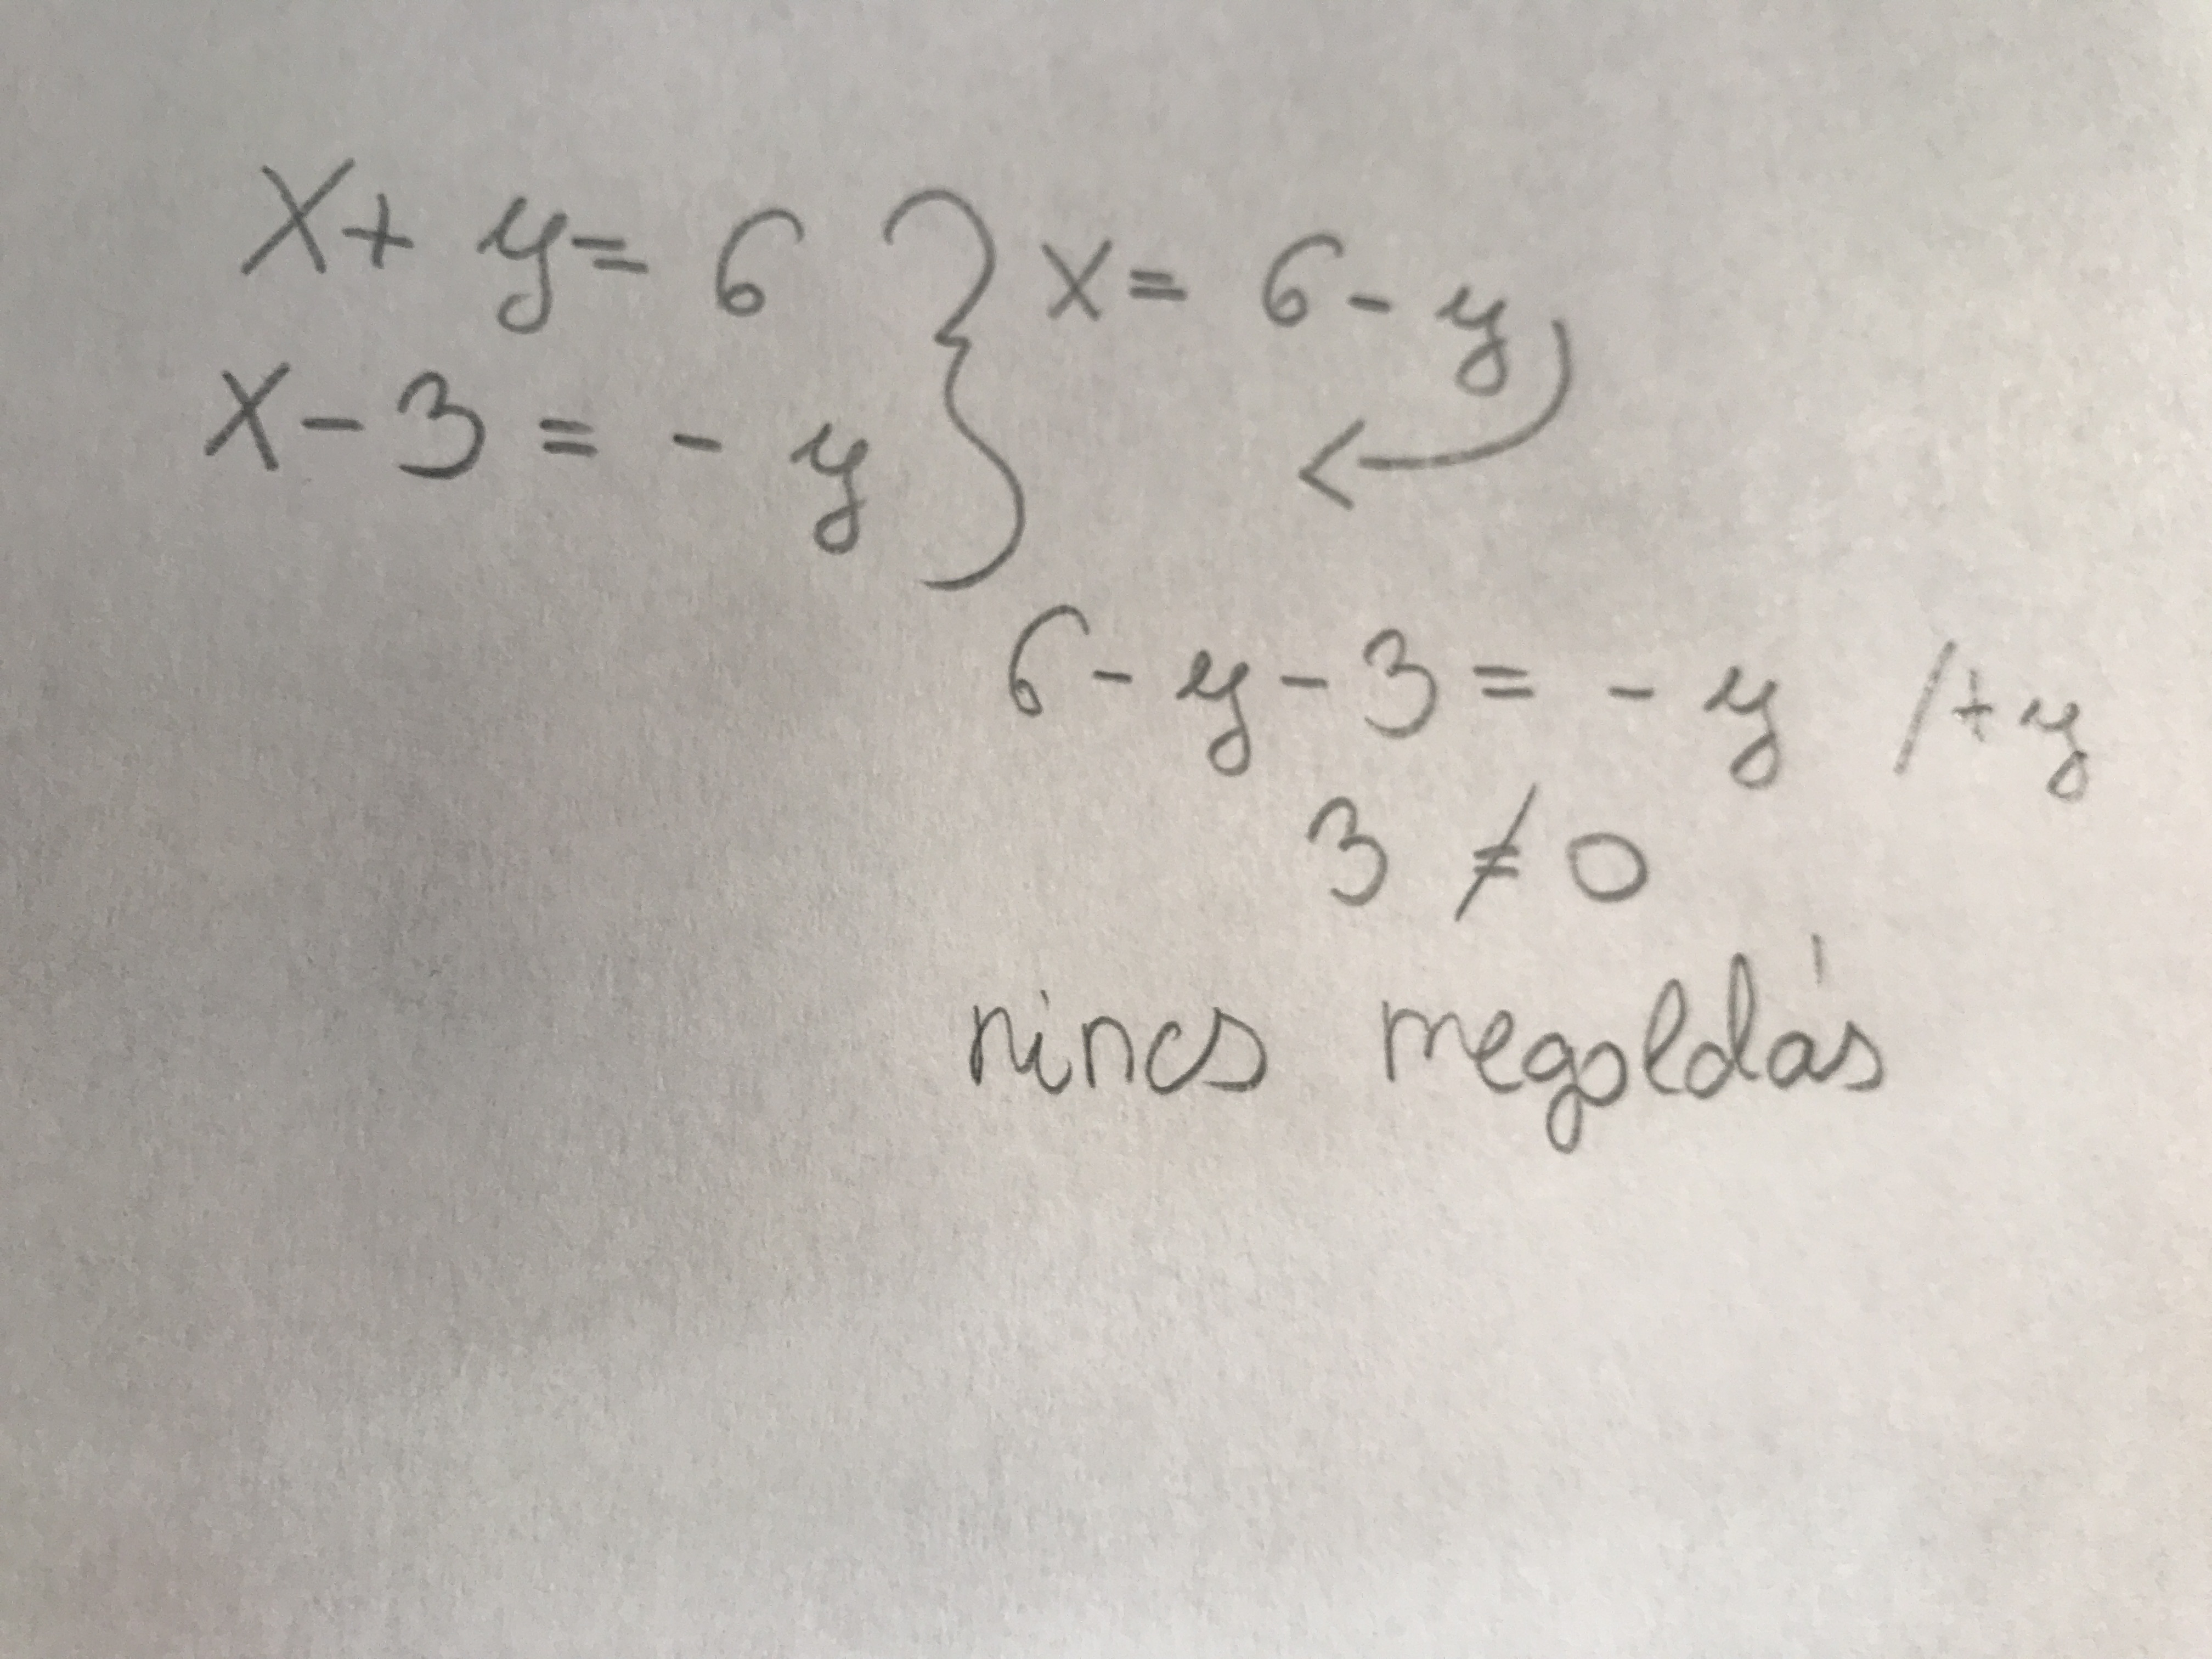 x + y = 6 } x = 6 - y
x - 3 = - y
6 - y - 3 = - y /+y
3 ≠ 0
nincs megoldás